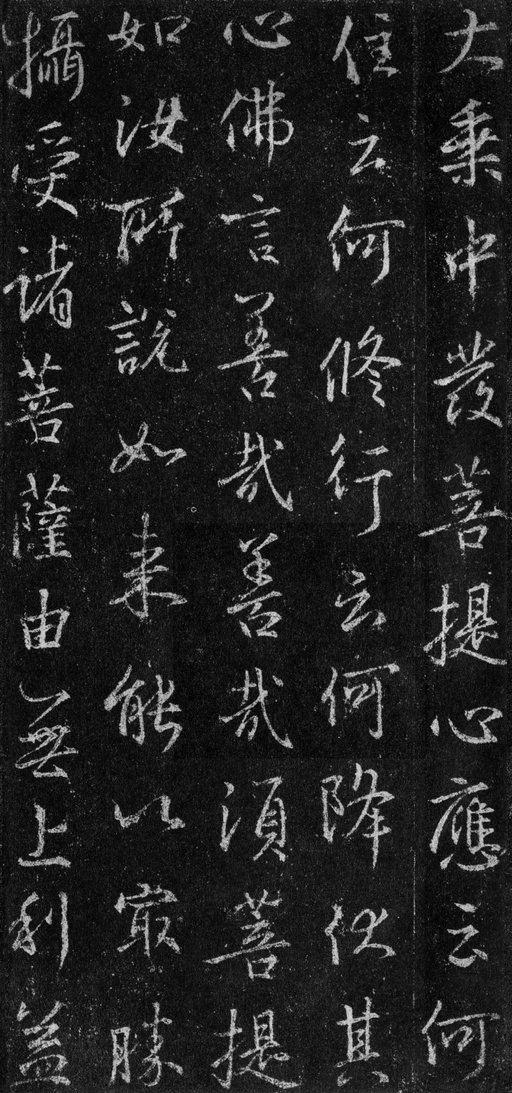 大乗中發菩提心應云何
住云何修行云何降伏其
心佛言善哉善哉須菩提
如汝所說如来能以㝡勝
攝受諸菩薩由無上利益